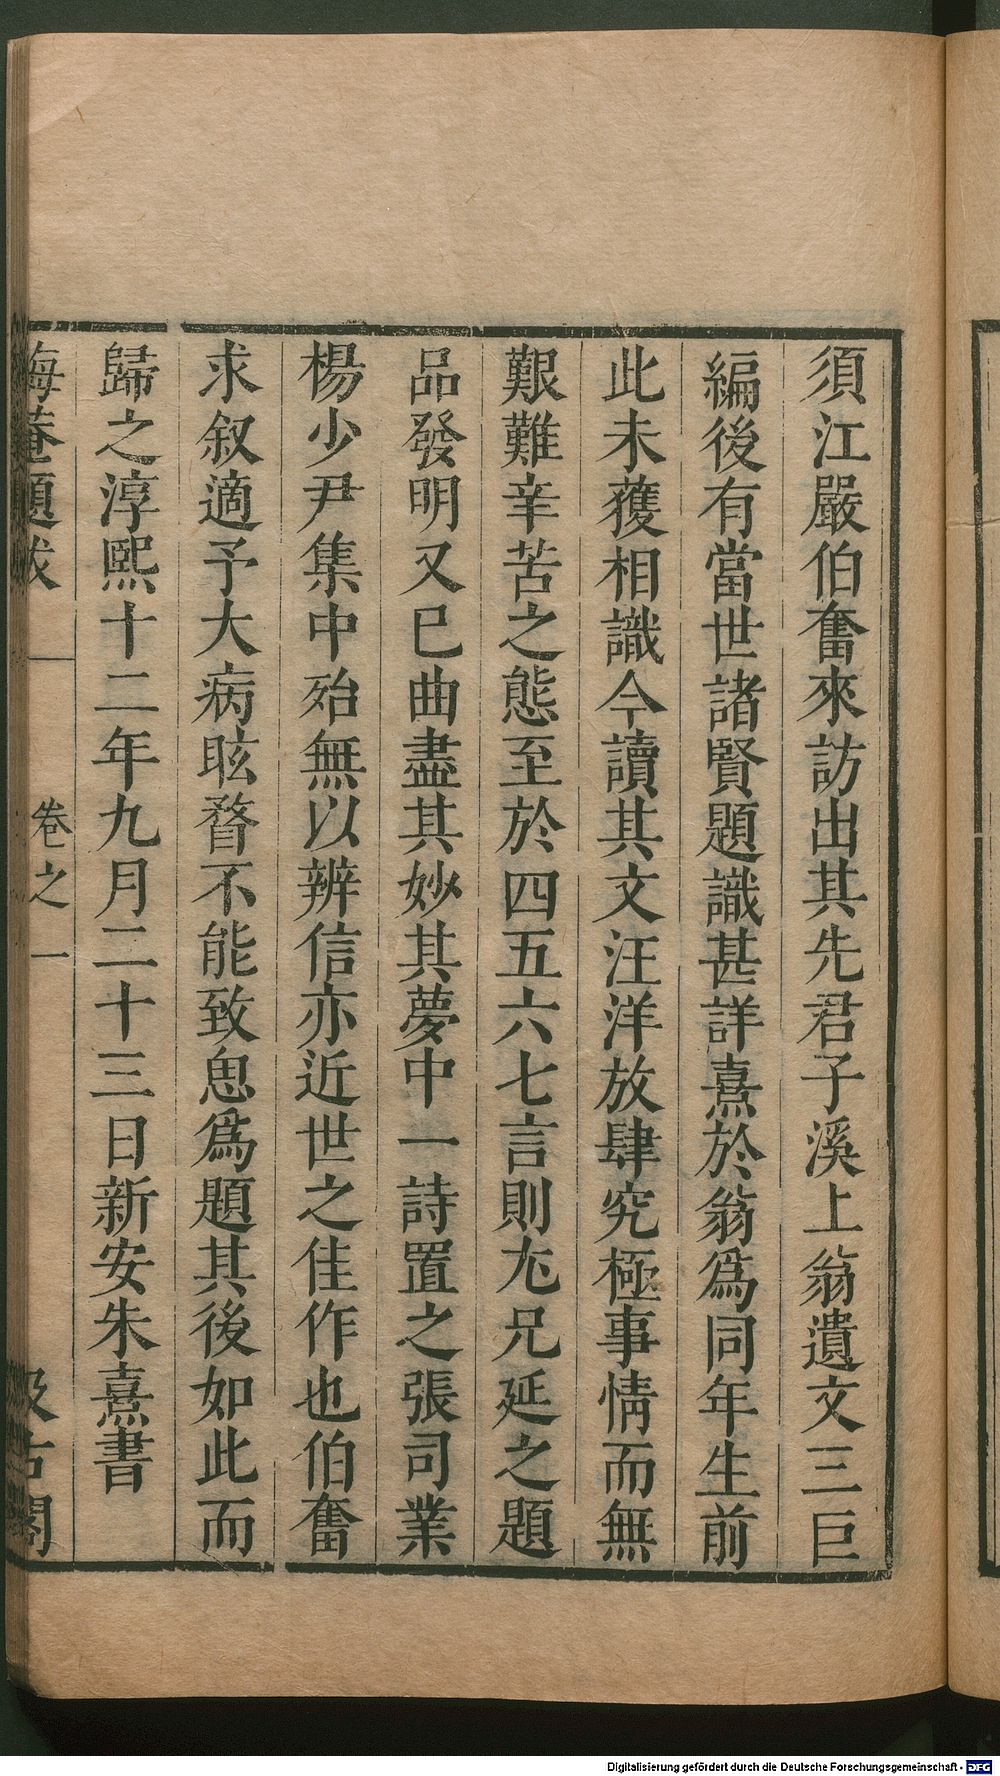 須江嚴伯奮來訪出其先君子溪上翁遺文三巨
編後有當世諸賢題識甚詳熹於翁爲同年生前
此未獲相識今讀其文汪洋放肆究極事情而無
艱難辛苦之態至於四五六七言則尤兄延之題
品發明又已曲盡其妙其夢中一詩置之張司業
楊少尹集中殆無以辨信亦近世之佳作也伯奮
求叙適予大病眩瞀不能致思爲題其後如此而
歸之淳熙十二年九月二十三日新安朱熹書
晦菴題跋 卷之一 汲古閣
Digitalisierung gefördert durch die Deutsche Forschungsgemeinschaft - DFG